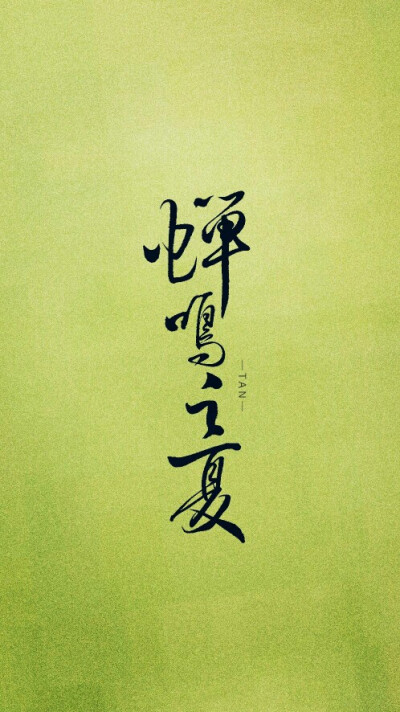 蝉鸣之夏
—TAN—